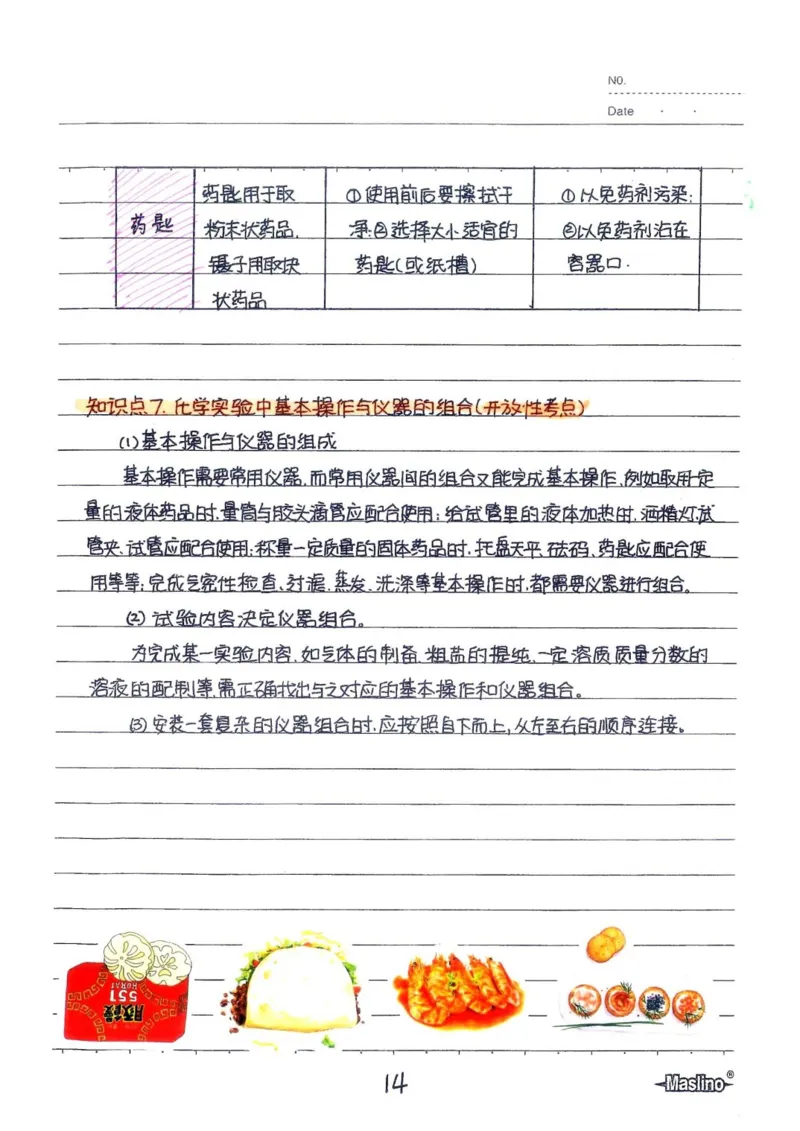 NO.
Date
药匙用于取 ①使用前后要擦拭干 ①以免药剂污染;
药匙 粉末状药品. 净;②选择大小适宜的 ②以免药剂沾在
镊子用取块 药匙(或纸槽) 容器口.
状药品
知识点7. 化学实验中基本操作与仪器的组合(开放性考点)
(1)基本操作与仪器的组成
基本操作需要常用仪器,而常用仪器间的组合又能完成基本操作,例如取用一定
量的液体药品时,量筒与胶头滴管应配合使用;给试管里的液体加热时,酒精灯、试
管夹、试管应配合使用;称量一定质量的固体药品时,托盘天平、砝码、药匙应配合使
用等等;完成气密性检查、过滤、蒸发、洗涤等基本操作时,都需要仪器进行组合。
(2) 试验内容决定仪器组合。
为完成某一实验内容,如气体的制备、粗盐的提纯、一定溶质质量分数的
溶液的配制等,需正确找出与之对应的基本操作和仪器组合。
(3)安装一套复杂的仪器组合时,应按照自下而上,从左至右的顺序连接。
551
HORAI
豚饅
14
Maslino®